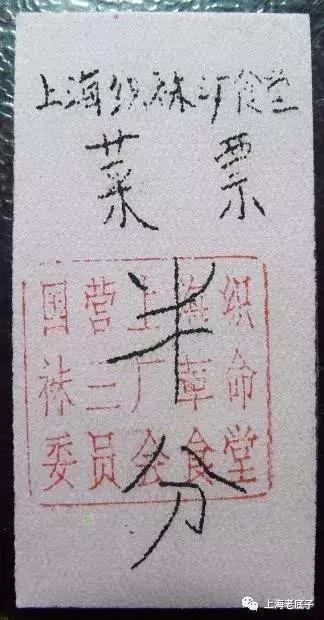 上海织袜三厂食堂
菜票
半分
国营上海织
袜三厂革命
委员会食堂
上海老底子